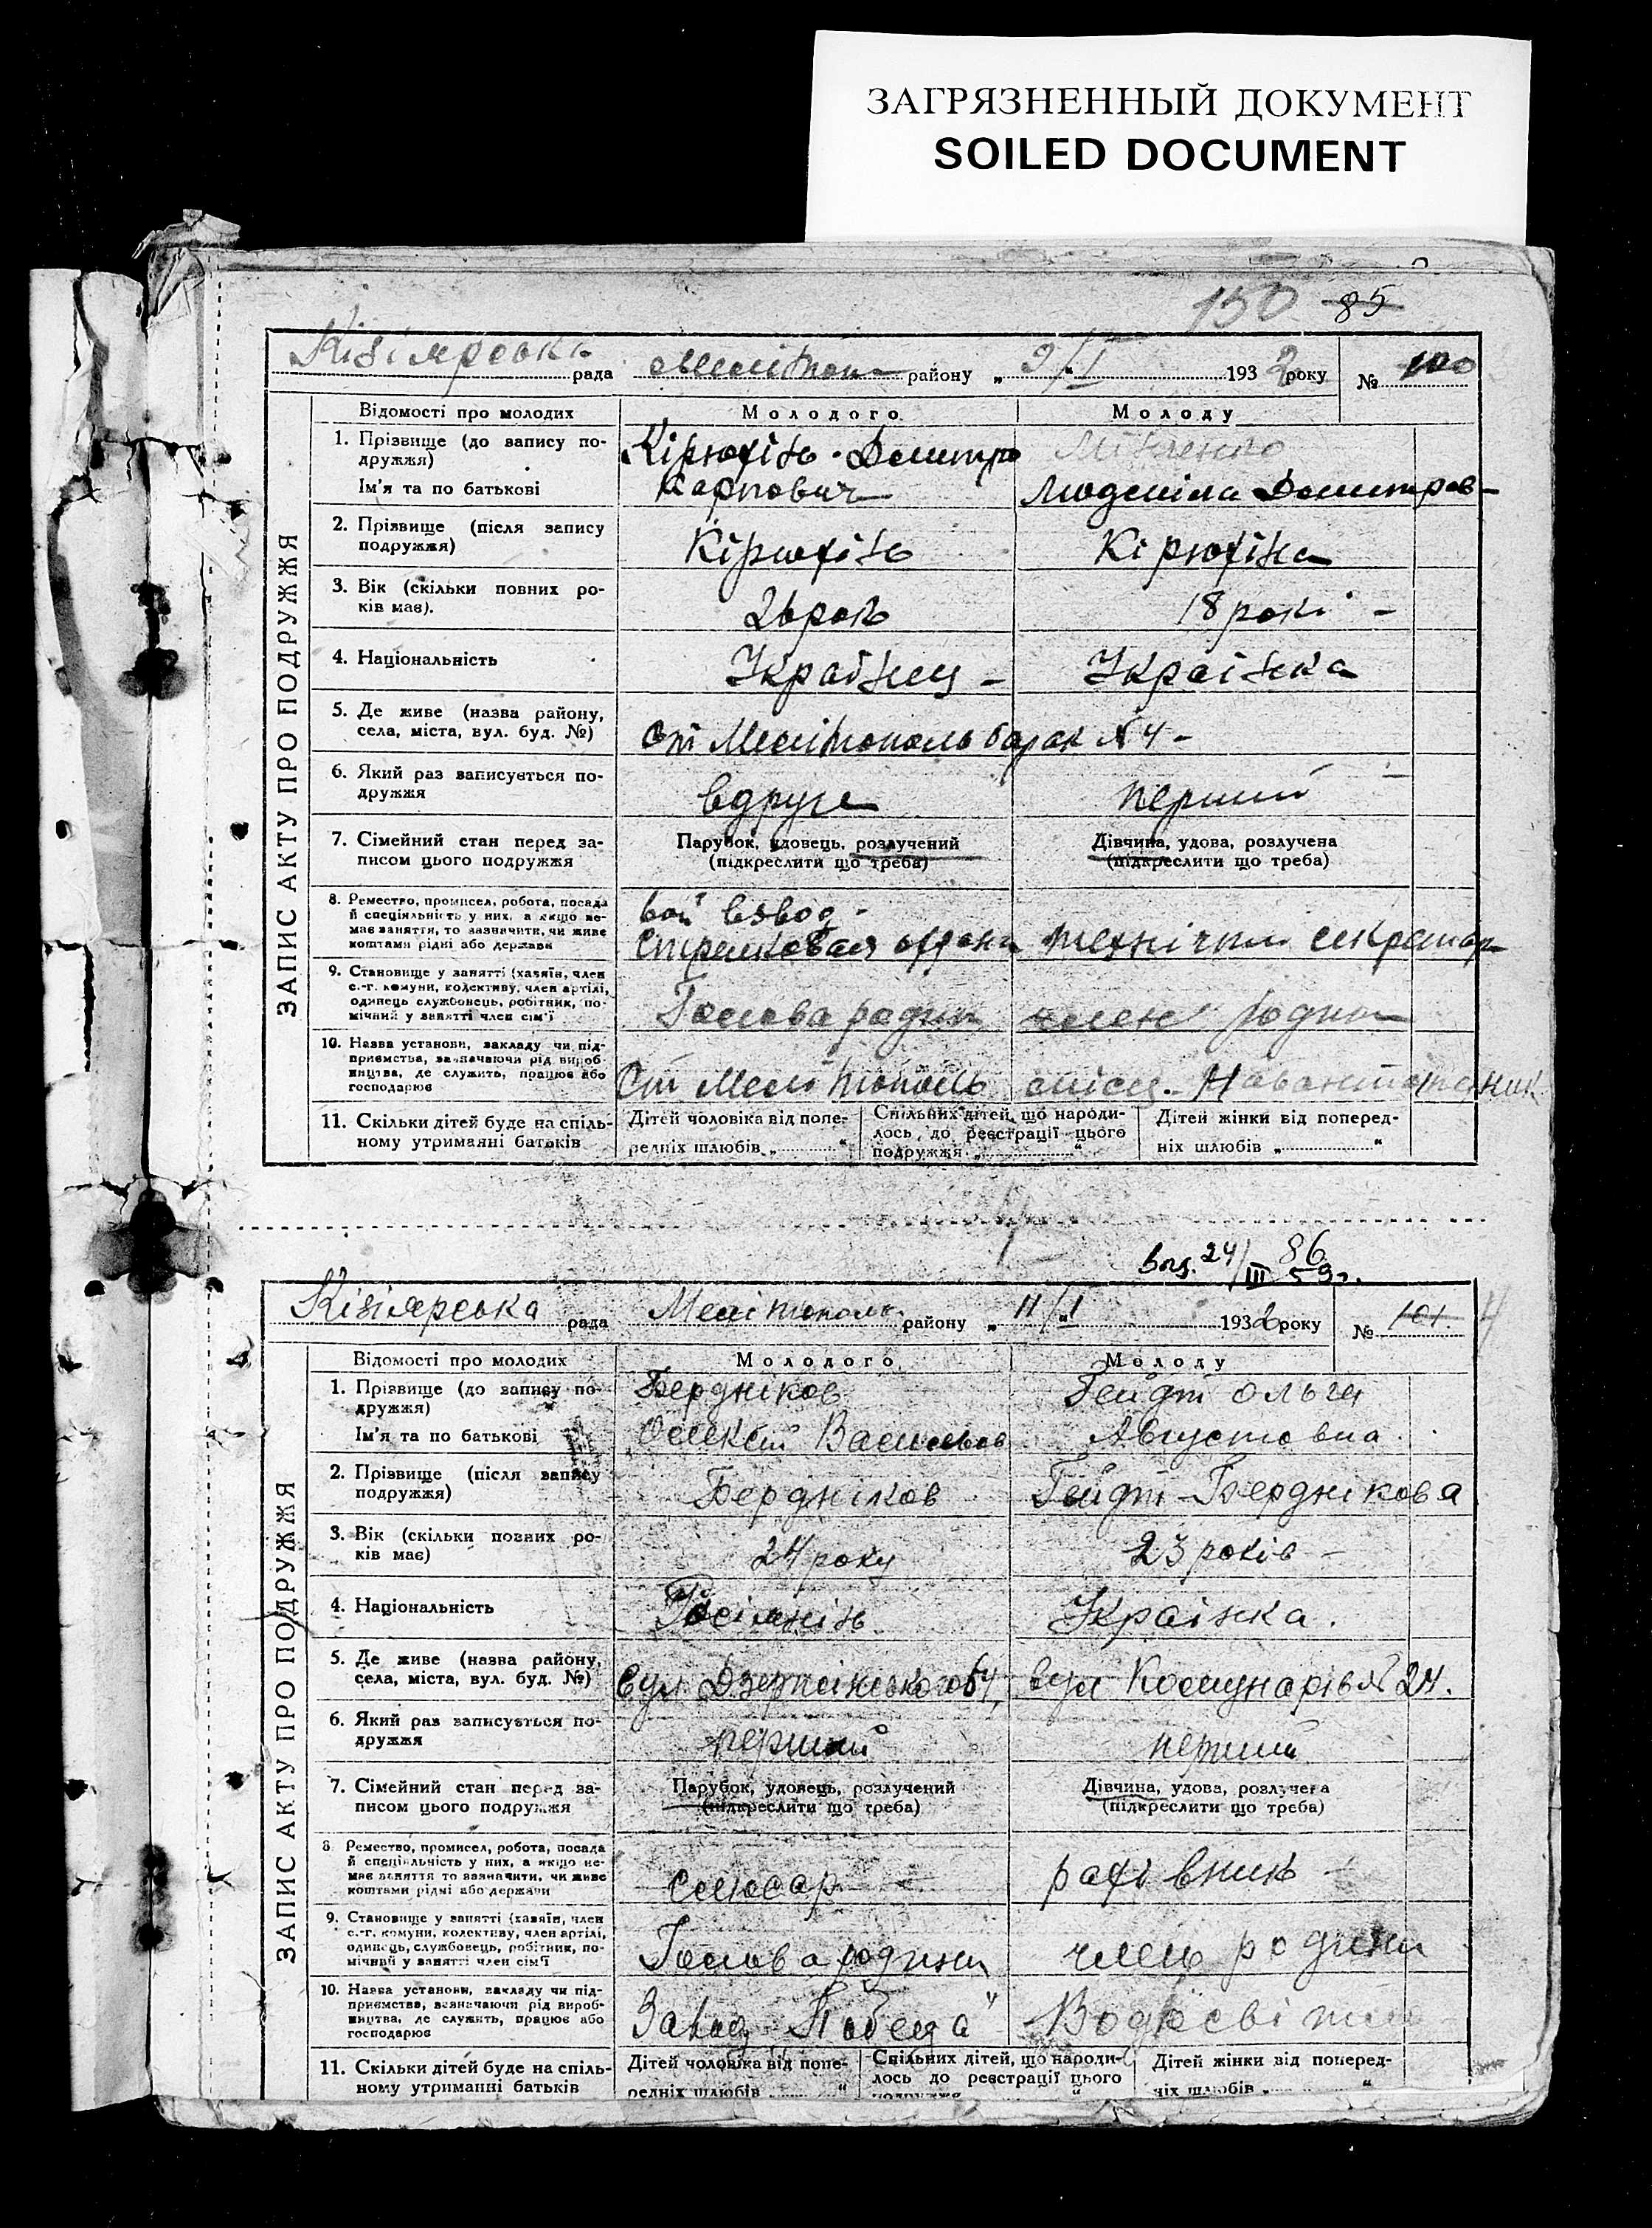 ЗАГРЯЗНЕННЫЙ ДОКУМЕНТ
SOILED DOCUMENT
150 85
Кізіярська рада Меліtop району „ 9/I 1932 року № 100
ЗАПИС АКТУ ПРО ПОДРУЖЖЯ
Відомості про молодих Молодого Молоду
1. Прізвище (до запису по-
дружжя)
Кірюхінь Дмитро
Ім'я та по батькові
Карпович Людміла Дмитров-
2. Прізвище (після запису
подружжя)
Кірюхінь Кірюхіна
3. Вік (скільки повних ро-
ків має).
26 рок 18 рокі
4. Національність
Українец Українка
5. Де живе (назва району,
села, міста, вул. буд. №)
ст Мелітополь барак №4
6. Який раз записується по-
дружжя
вдруге перший
7. Сімейний стан перед за-
писом цього подружжя
Парубок, удовець, розлучений
(підкреслити що треба)
Дівчина, удова, розлучена
(підкреслити що треба)
8. Ремество, промисел, робота, посада
й спеціяльність у них, а якщо не-
має заняття, то зазначити, чи живе
коштами рідні або держави
взвод
Стрелковая охрана технічни секретар
9. Становище у занятті (хазяїн, член
с.-г. комуни, колективу, член артілі,
одинець службовець, робітник, по-
мічний у занятті член сім'ї
Голова родин член родин
10. Назва установи, закладу чи під-
приємства, зазначаючи рід вироб-
ництва, де служить, працює або
господарює
Ст Мелітополь
11. Скільки дітей буде на спіль-
ному утриманні батьків
Дітей чоловіка від попе-
редніх шлюбів „ “
Спільних дітей, що народи-
лось до реєстрації цього
подружжя „ “
Дітей жінки від поперед-
ніх шлюбів „ “
24/III 59г. 86
Кізіярська рада Мелітополь району „ 11/I 1932 року № 101 4
ЗАПИС АКТУ ПРО ПОДРУЖЖЯ
Відомості про молодих Молодого Молоду
1. Прізвище (до запису по-
дружжя)
Бердніков Гейдт Ольга
Ім'я та по батькові
Олексій Васильов Августовна
2. Прізвище (після запису
подружжя)
Бердніков Гейдт-Берднікова
3. Вік (скільки повних ро-
ків має)
24 року 23 років
4. Національність
Росіянінь Українка.
5. Де живе (назва району,
села, міста, вул. буд. №)
вул Дзержінського 64, вул Комунарів № 24.
6. Який раз записується по-
дружжя
перший перший
7. Сімейний стан перед за-
писом цього подружжя
Парубок, удовець, розлучений
(підкреслити що треба)
Дівчина, удова, розлучена
(підкреслити що треба)
8 Ремество, промисел, робота, посада
й спеціяльність у них, а якщо не-
має заняття то зазначити, чи живе
коштами рідні або держави
Слюсар рахівник
9. Становище у занятті (хазяїн, член
с.-г. комуни, колективу, член артілі,
одинець, службовець, робітник, по-
мічний у занятті член сім'ї
Голова родини член родини
10. Назва установи, закладу чи під-
приємства, зазначаючи рід вироб-
ництва, де служить, працює або
господарює
Завод „Победа“
11. Скільки дітей буде на спіль-
ному утриманні батьків
Дітей чоловіка від попе-
редніх шлюбів „ “
Спільних дітей, що народи-
лось до реєстрації цього
подружжя „ “
Дітей жінки від поперед-
ніх шлюбів „ “